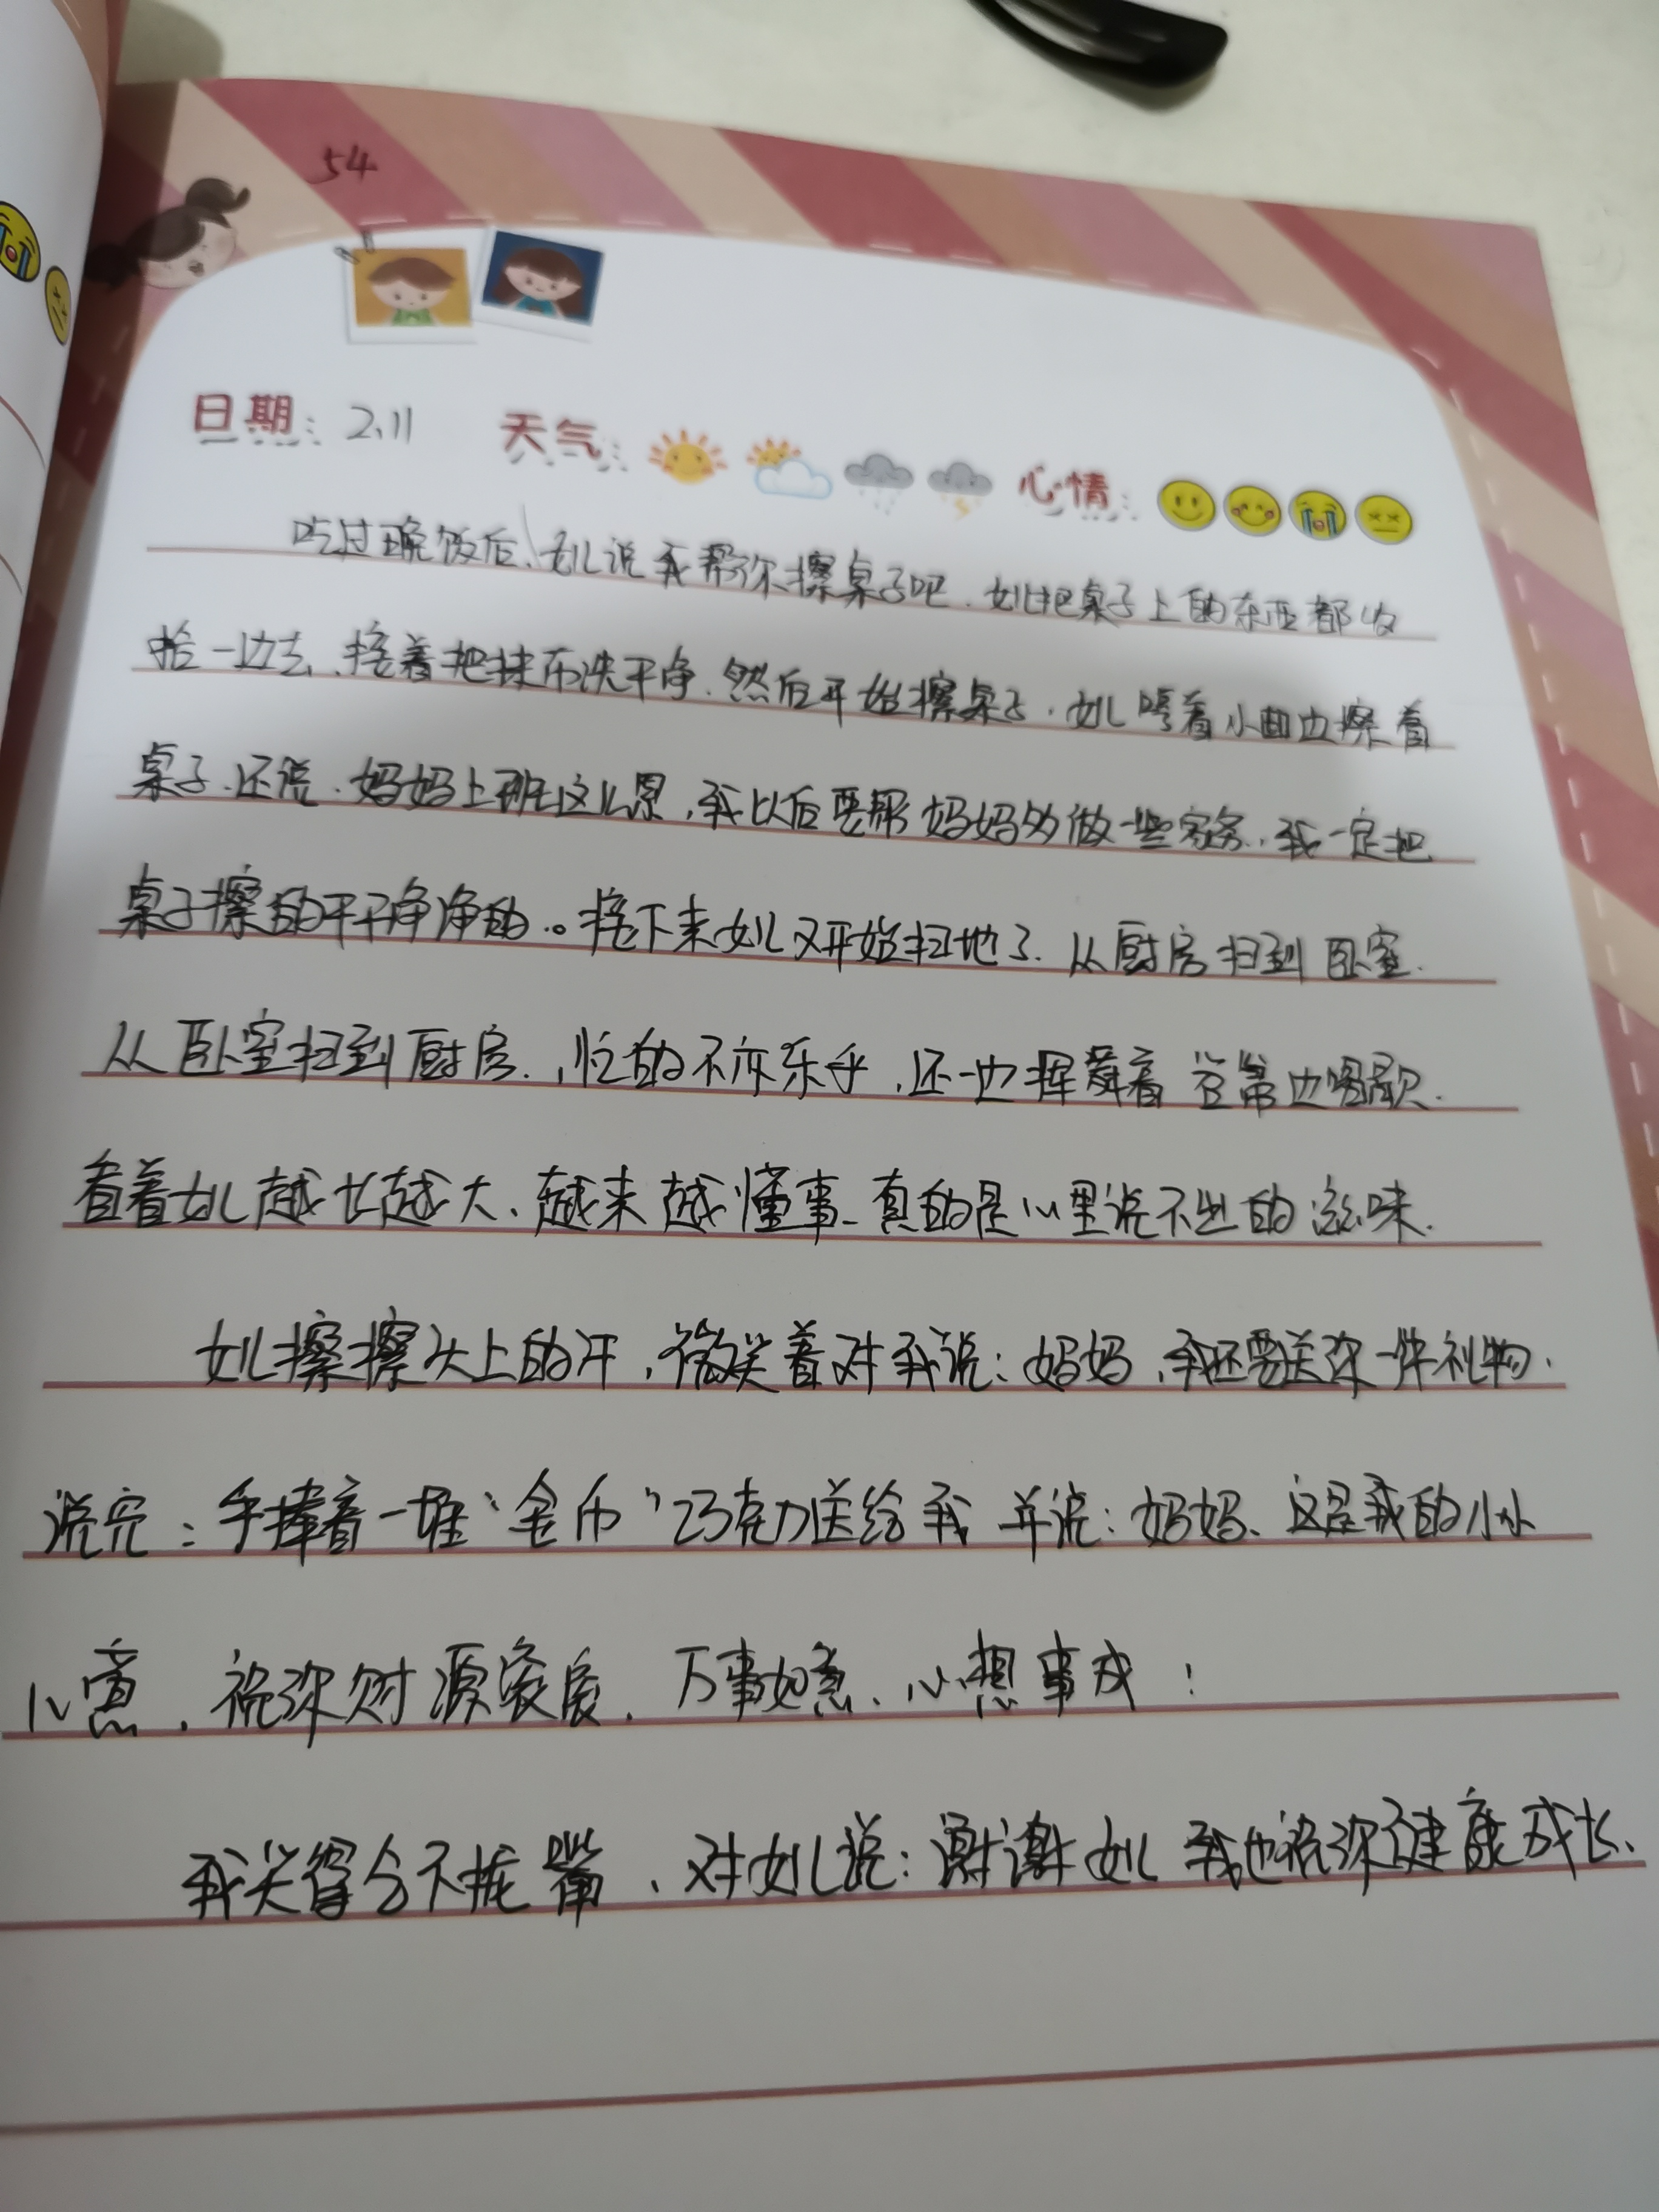 54
日期: 2.11 天气: 心情:
吃过晚饭后、女儿说我帮你擦桌子吧.女儿把桌子上的东西都收
拾一边去、接着把抹布洗干净.然后开始擦桌子.女儿哼着小曲边擦着
桌子.还说.妈妈上班这么累,我以后要帮妈妈多做一些家务.我一定把
桌子擦的干干净净的.。接下来女儿又开始扫地了.从厨房扫到卧室.
从卧室扫到厨房.,忙的不亦乐乎,还一边挥舞着笤帚边唱歌.
看着女儿越长越大、越来越懂事、真的是心里说不出的滋味.
女儿擦擦头上的汗,微笑着对我说:妈妈,我还要送你一件礼物.
说完:手捧着一堆“金币”巧克力送给我 并说:妈妈、这是我的小小
心意,祝你财源滚滚.万事如意、心想事成!
我笑得合不拢嘴、对女儿说:谢谢女儿 我也祝你健康成长、